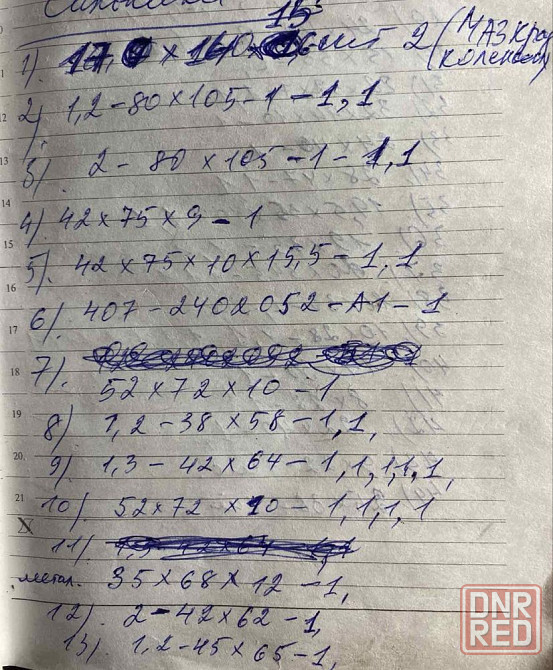 Сальники
15
1). шт 2 (МАЗ кра
(коленвал)
2) 1,2-80×105-1-1,1
3) 2-80×105-1-1,1
4) 42×75×9-1
5). 42×75×10×15,5-1,1
6) 407-2402052-А1-1
7).
52×72×10-1
8) 1,2-38×58-1,1,
9) 1,3-42×64-1,1,1,1,1,
10) 52×72×10-1,1,1,1
11)
метал. 35×68×12-1,
12). 2-42×62-1,
13). 1,2-45×65-1,
12
13
14
15
16
17
18
19
20
21
DNR
RED